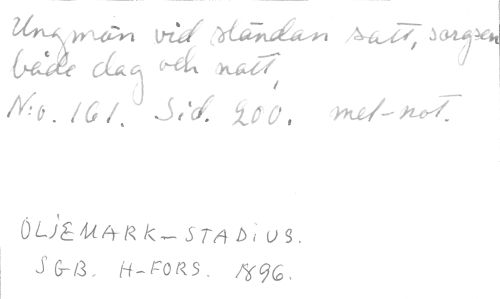 Ungmön vid ständan satt, sorgsen
både dag och natt,
N:o. 161. Sid. 200. mel-not.
OLJEMARK-STADIUS.
SGB. H-FORS. 1896.